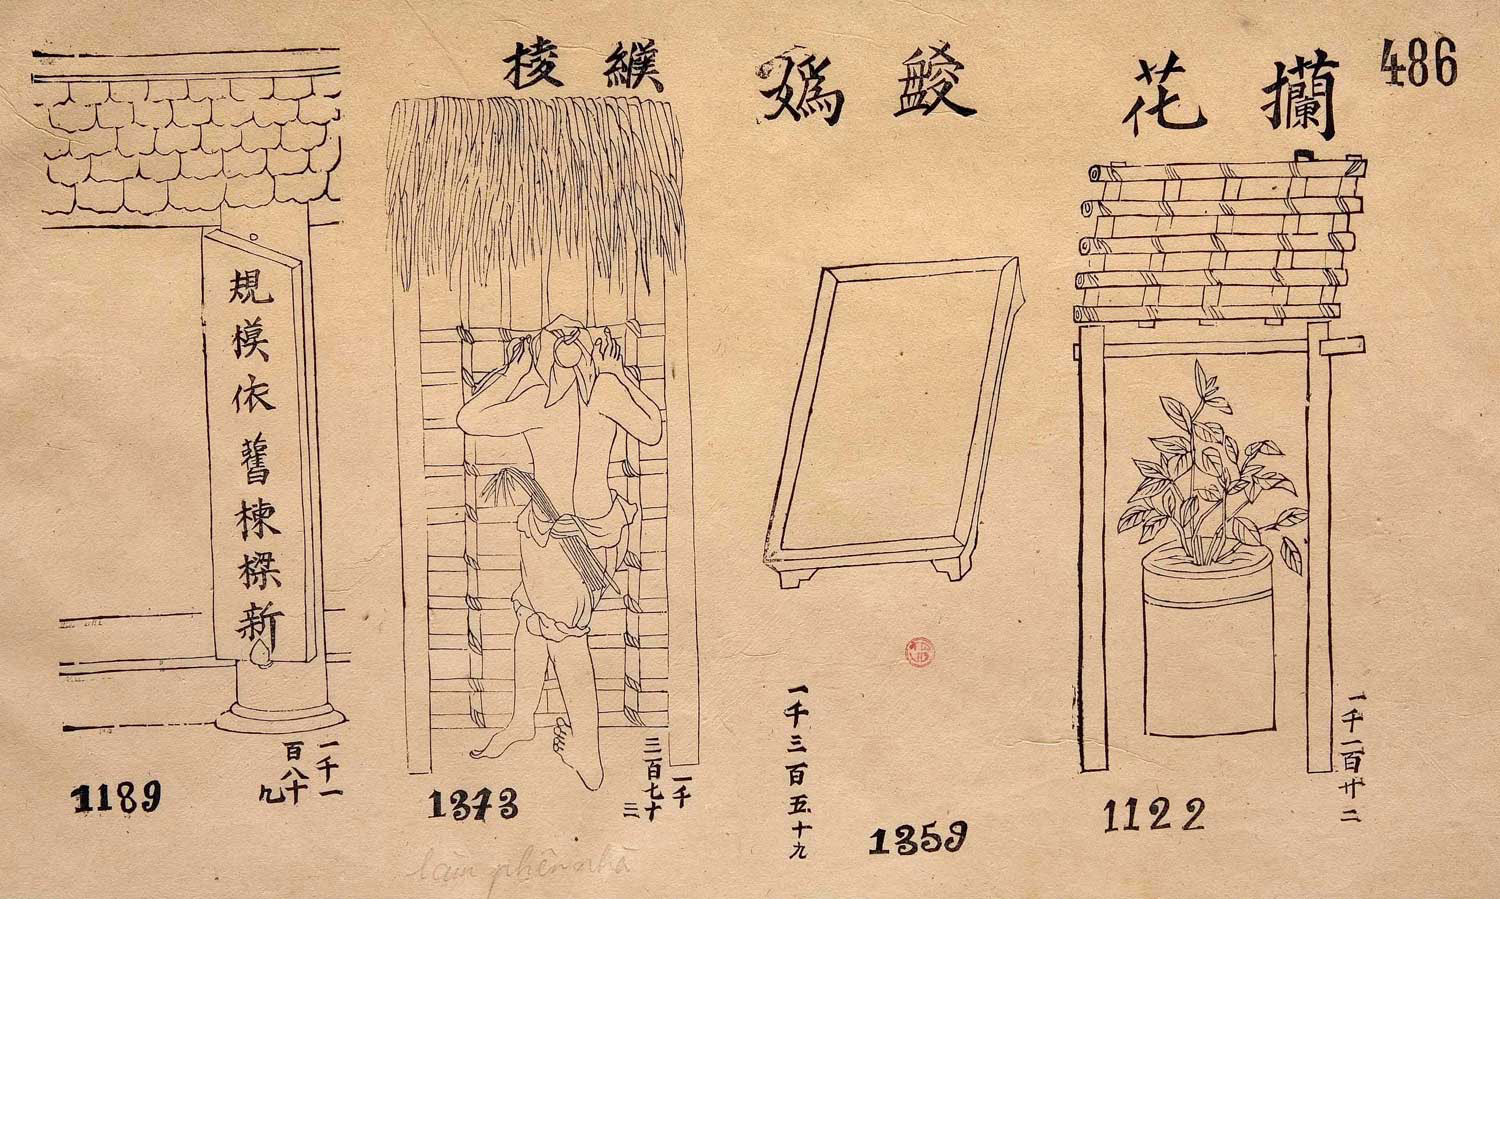 486
攔花
綘棱
規模依舊棟樑新
一千一百八十九
1189
一千三百七十三
1373
一千三百五十九
1359
一千一百廿二
1122
làm phên nhà